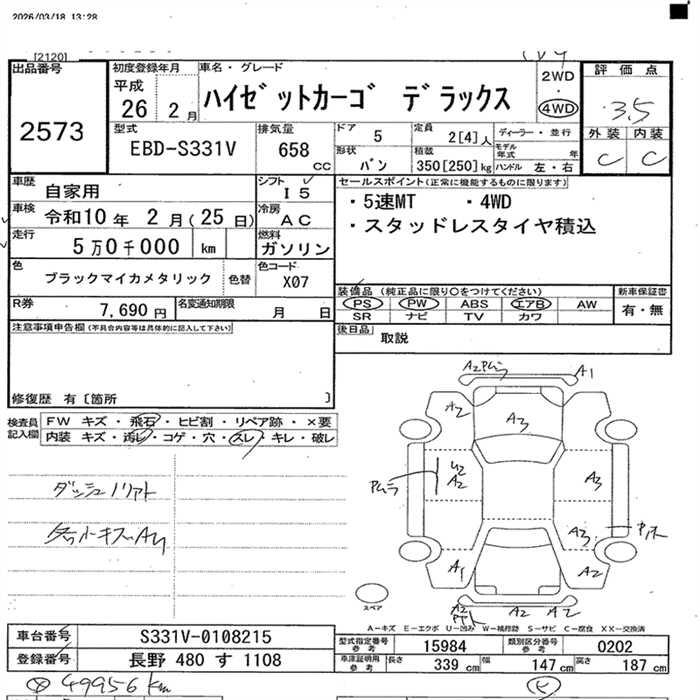 2026/03/18 13:28
[2120]
出品番号
2573
初度登録年月
平成
26年 2月
車名・グレード
ハイゼットカーゴ デラックス
2WD
・
4WD
評価点
3.5
外装 内装
C C
型式
EBD-S331V
排気量
658 cc
ドア 5
形状 バン
定員 2[4]人
積載 350[250]kg
ディーラー・並行
モデル年式 年
ハンドル 左・右
車歴 自家用
シフト I5
車検 令和10年 2月(25日)
冷房 AC
走行 5万0千000 km
燃料 ガソリン
色 ブラックマイカメタリック 色替
色コード X07
R券 7,690円
名変通知期限 月 日
セールスポイント(正常に機能するものに限ります)
・5速MT ・4WD
・スタッドレスタイヤ積込
装備品 (純正品に限り○をつけてください)
PS PW ABS エアB AW
SR ナビ TV カワ
新車保証書
有・無
後日品
取説
注意事項申告欄(不具合内容等は具体的に記入して下さい)
修復歴 有〔箇所 〕
検査員記入欄
FW キズ・飛石・ヒビ割・リペア跡・×要
内装 キズ・汚レ・コゲ・穴・スレ・キレ・破レ
ダッシュノリアト
A2 Pムラ
A1
A2
A3
Pムラ
U2
A2
A3
A3
Pハト
A1
A2
A2
A2
A2
スペア
A-キズ E-エクボ U-凹み W-補修跡 S-サビ C-腐食 XX-交換済
車台番号 S331V-0108215
登録番号 長野 480 す 1108
型式指定番号 参考 15984
類別区分番号 参考 0202
車庫証明用 参考 長さ 339 cm 幅 147 cm 高さ 187 cm
49956 km